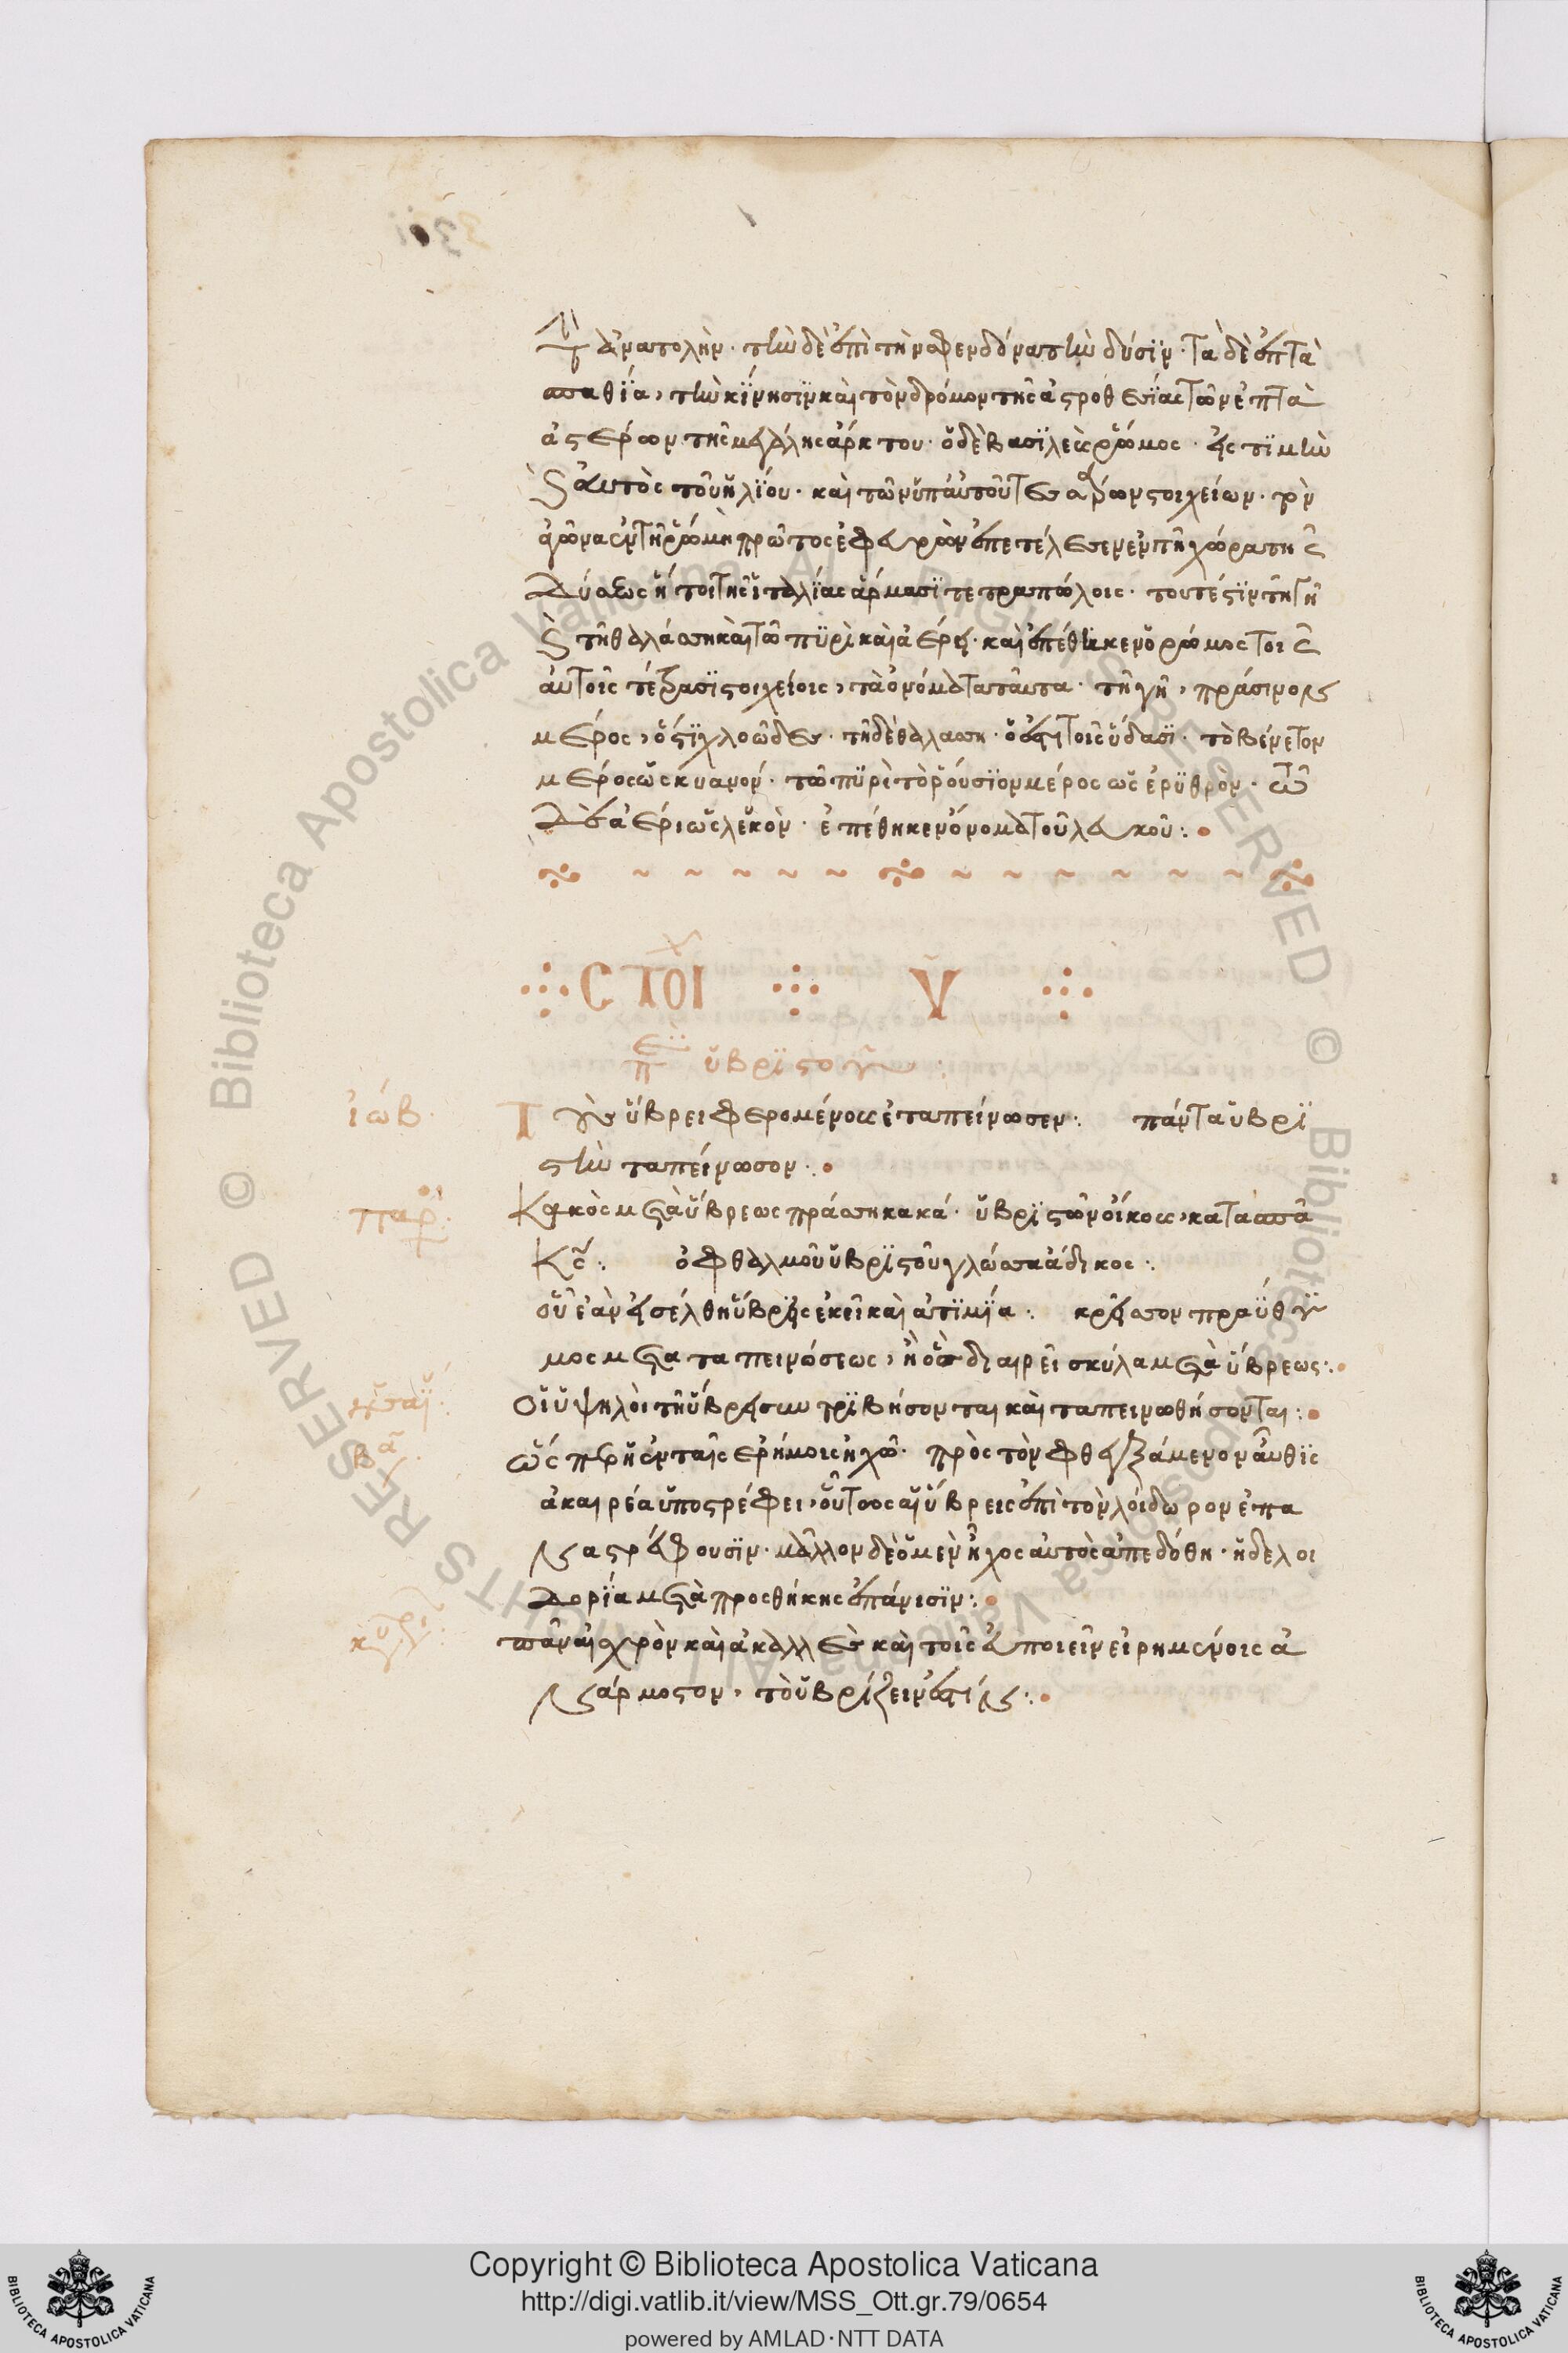 τὴν ἀνατολήν· τὴν δὲ ἐπὶ τὴν σφενδόναν τὴν δύσιν· τὰ δὲ ἑπτὰ
σπαθία, τὴν κίνησιν καὶ τὸν δρόμον τῆς ἀστροθεσίας τῶν ἑπτὰ
ἀστέρων τῆς μεγάλης ἄρκτου· ὁ δὲ βασιλεὺς ῥῶμος· εἰς τιμὴν
καὶ αὐτὸς τοῦ ἡλίου· καὶ τῶν ὑπ' αὐτοῦ τεσσάρων στοιχείων· τὸν
ἀγῶνα ἐν τῇ ῥώμῃ πρῶτος ἐφευρὼν ἐπετέλεσεν ἐν τῇ χώρα τῆς
δύσεως ἤτοι τῆς ἰταλίας ἅρμασι τετραπώλοις· τουτέστιν τῇ γῇ
καὶ τῇ θαλάσση καὶ τῶ πυρὶ καὶ ἀέρι· καὶ ἐπέθηκεν ὁ ῥῶμος τοῖς
αὐτοῖς τέτρασι στοιχείοις, τὰ ὀνόματα ταῦτα· τῇ γῇ, πράσινον
μέρος, ὅ ἐστι χλοῶδες· τῇ δὲ θαλάσση· ὅ ἐστι τοῖς ὕδασι· τὸ βένετον
μέρος ὡς κυανόν· τῶ πυρὶ τὸ ῥούσιον μέρος ὡς ἐρυθρόν· τῶ
δὲ ἀέρι ὡς λευκόν· ἐπέθηκεν ὄνομα τοῦ λευκοῦ:
ΣΤΟΙΧ Υ
περὶ ὑβριστοῦ:
ἰώβ· Τοὺς ὕβρει φερομένους ἐταπείνωσεν: πάντα ὑβρι
στὴν ταπείνωσον:
παρ· Κακὸς μετὰ ὕβρεως πράσση κακά· ὑβριστῶν οἴκους, κατασπᾶ
κς: ὀφθαλμοῦ ὑβριστοῦ γλῶσσα ἄδικος:
οὗ ἐὰν εἰσέλθη ὕβρις ἐκεῖ καὶ ἀτιμία: κρεῖσσον πραΰθυ
μος μετὰ ταπεινώσεως, ἢ ὃς διαιρεῖ σκύλα μετὰ ὕβρεως:
ησαΐ: Οἱ ὑψηλοὶ τῇ ὕβρει συντριβήσονται καὶ ταπεινωθήσονται:
βασ Ὥσπερ ἡ ἐν ταῖς ἐρήμοις ἠχώ· πρὸς τὸν φθεγξάμενον αὖθις
ἀκαιρέα ὑποστρέφει, οὕτως αἱ ὕβρεις ἐπὶ τὸν λοίδωρον ἐπα
ναστρέφουσιν· μᾶλλον δὲ ὁ μὲν ἦχος αὐτὸς ἀπεδόθη· ἡ δὲ λοι
δορία μετὰ προσθήκης ἐπάνεισιν:
κυρίλ: πᾶν αἰσχρὸν καὶ ἀκαλλὲς καὶ τοῖς εὖ ποιεῖν εἰρημένοις ἀ
νάρμοστον, τὸ ὑβρίζειν ἐστίν:
Copyright © Biblioteca Apostolica Vaticana
http://digi.vatlib.it/view/MSS_Ott.gr.79/0654
powered by AMLAD·NTT DATA